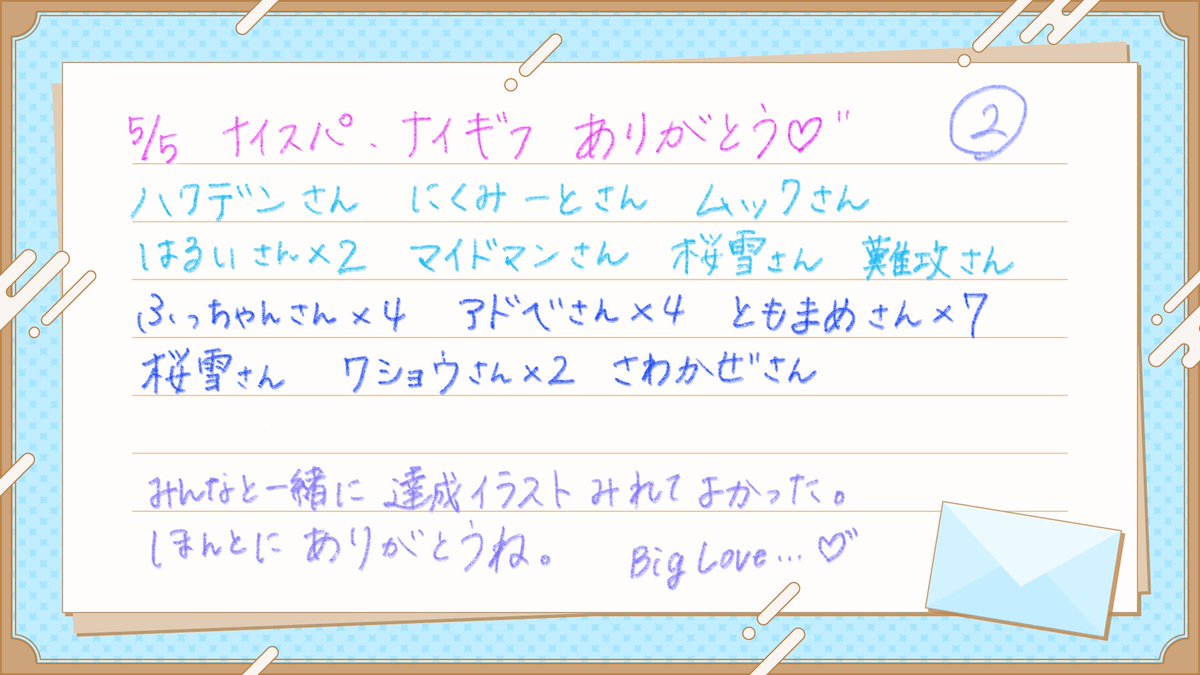 5/5 ナイスパ、ナイギフ ありがとう♡" ②
ハワデンさん にくみーとさん ムックさん
はるいさん×2 マイドマンさん 桜雪さん 難攻さん
ふっちゃんさん×4 アドベさん×4 ともまめさん×7
桜雪さん ワショウさん×2 さわかぜさん
みんなと一緒に 達成イラスト みれてよかった。
ほんとに ありがとうね。 Big Love… ♡"